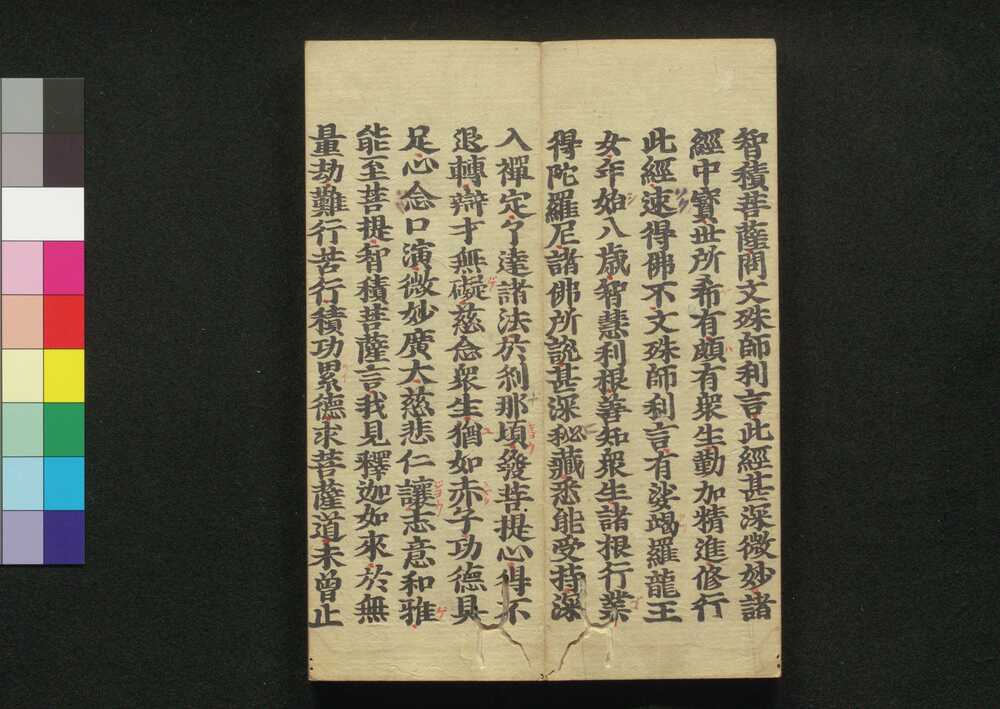 智積菩薩問文殊師利言此經甚深微妙諸
經中寳世所希有頗有衆生勤加精進修行
此經速得佛不文殊師利言有娑竭羅龍王
女年始八歳智慧利根善知衆生諸根行業
得陀羅尼諸佛所說甚深秘藏悉能受持深
入禪定了達諸法於刹那頃發菩提心得不
退轉辯才無礙慈念衆生猶如赤子功德具
足心念口演微妙廣大慈悲仁讓志意和雅
能至菩提智積菩薩言我見釋迦如來於無
量劫難行苦行積功累德求菩薩道未曾止